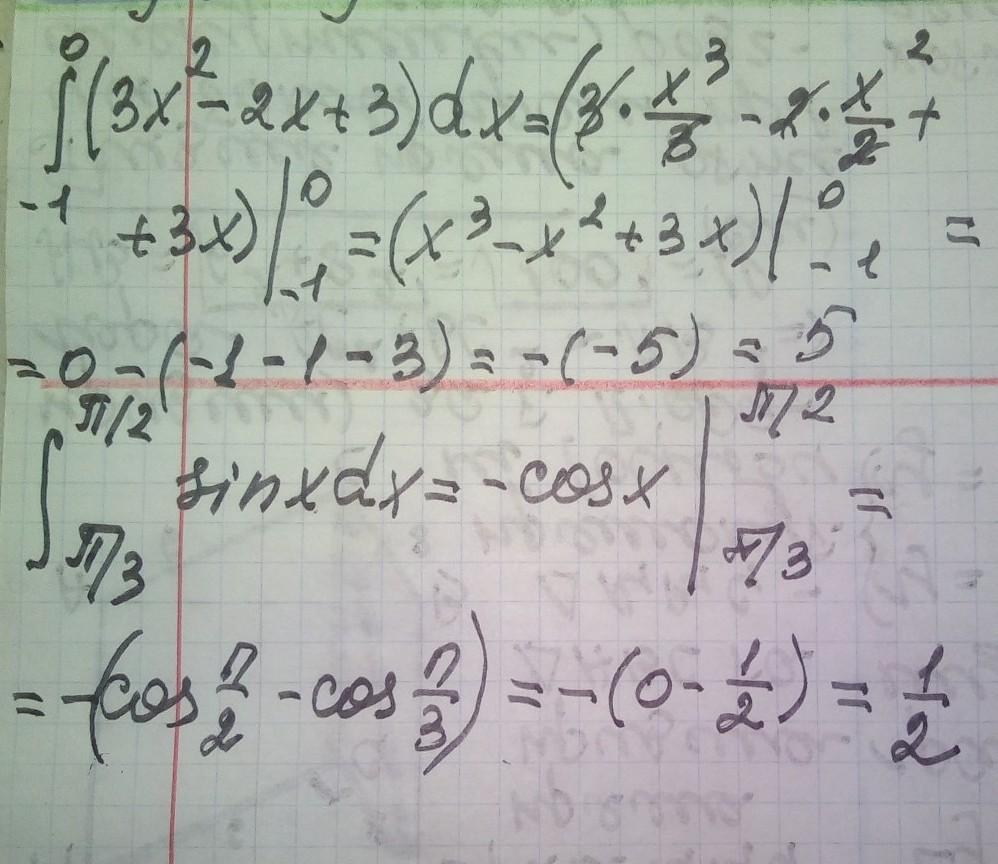 ∫₋₁⁰ (3x² - 2x + 3) dx = (3 · x³/3 - 2 · x²/2 +
+ 3x) |₋₁⁰ = (x³ - x² + 3x) |₋₁⁰ =
= 0 - (-1 - 1 - 3) = -(-5) = 5
∫_{π/3}^{π/2} sin x dx = -cos x |_{π/3}^{π/2} =
= -(cos π/2 - cos π/3) = -(0 - 1/2) = 1/2